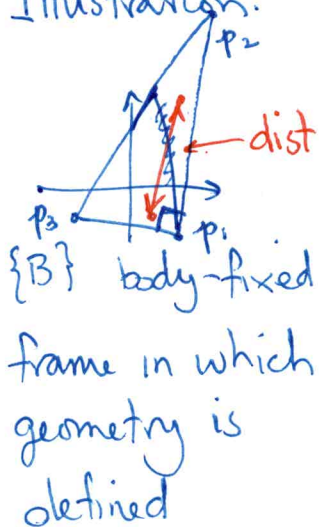 Illustration:
p2
dist
p3
p1
{B} body-fixed
frame in which
geometry is
defined